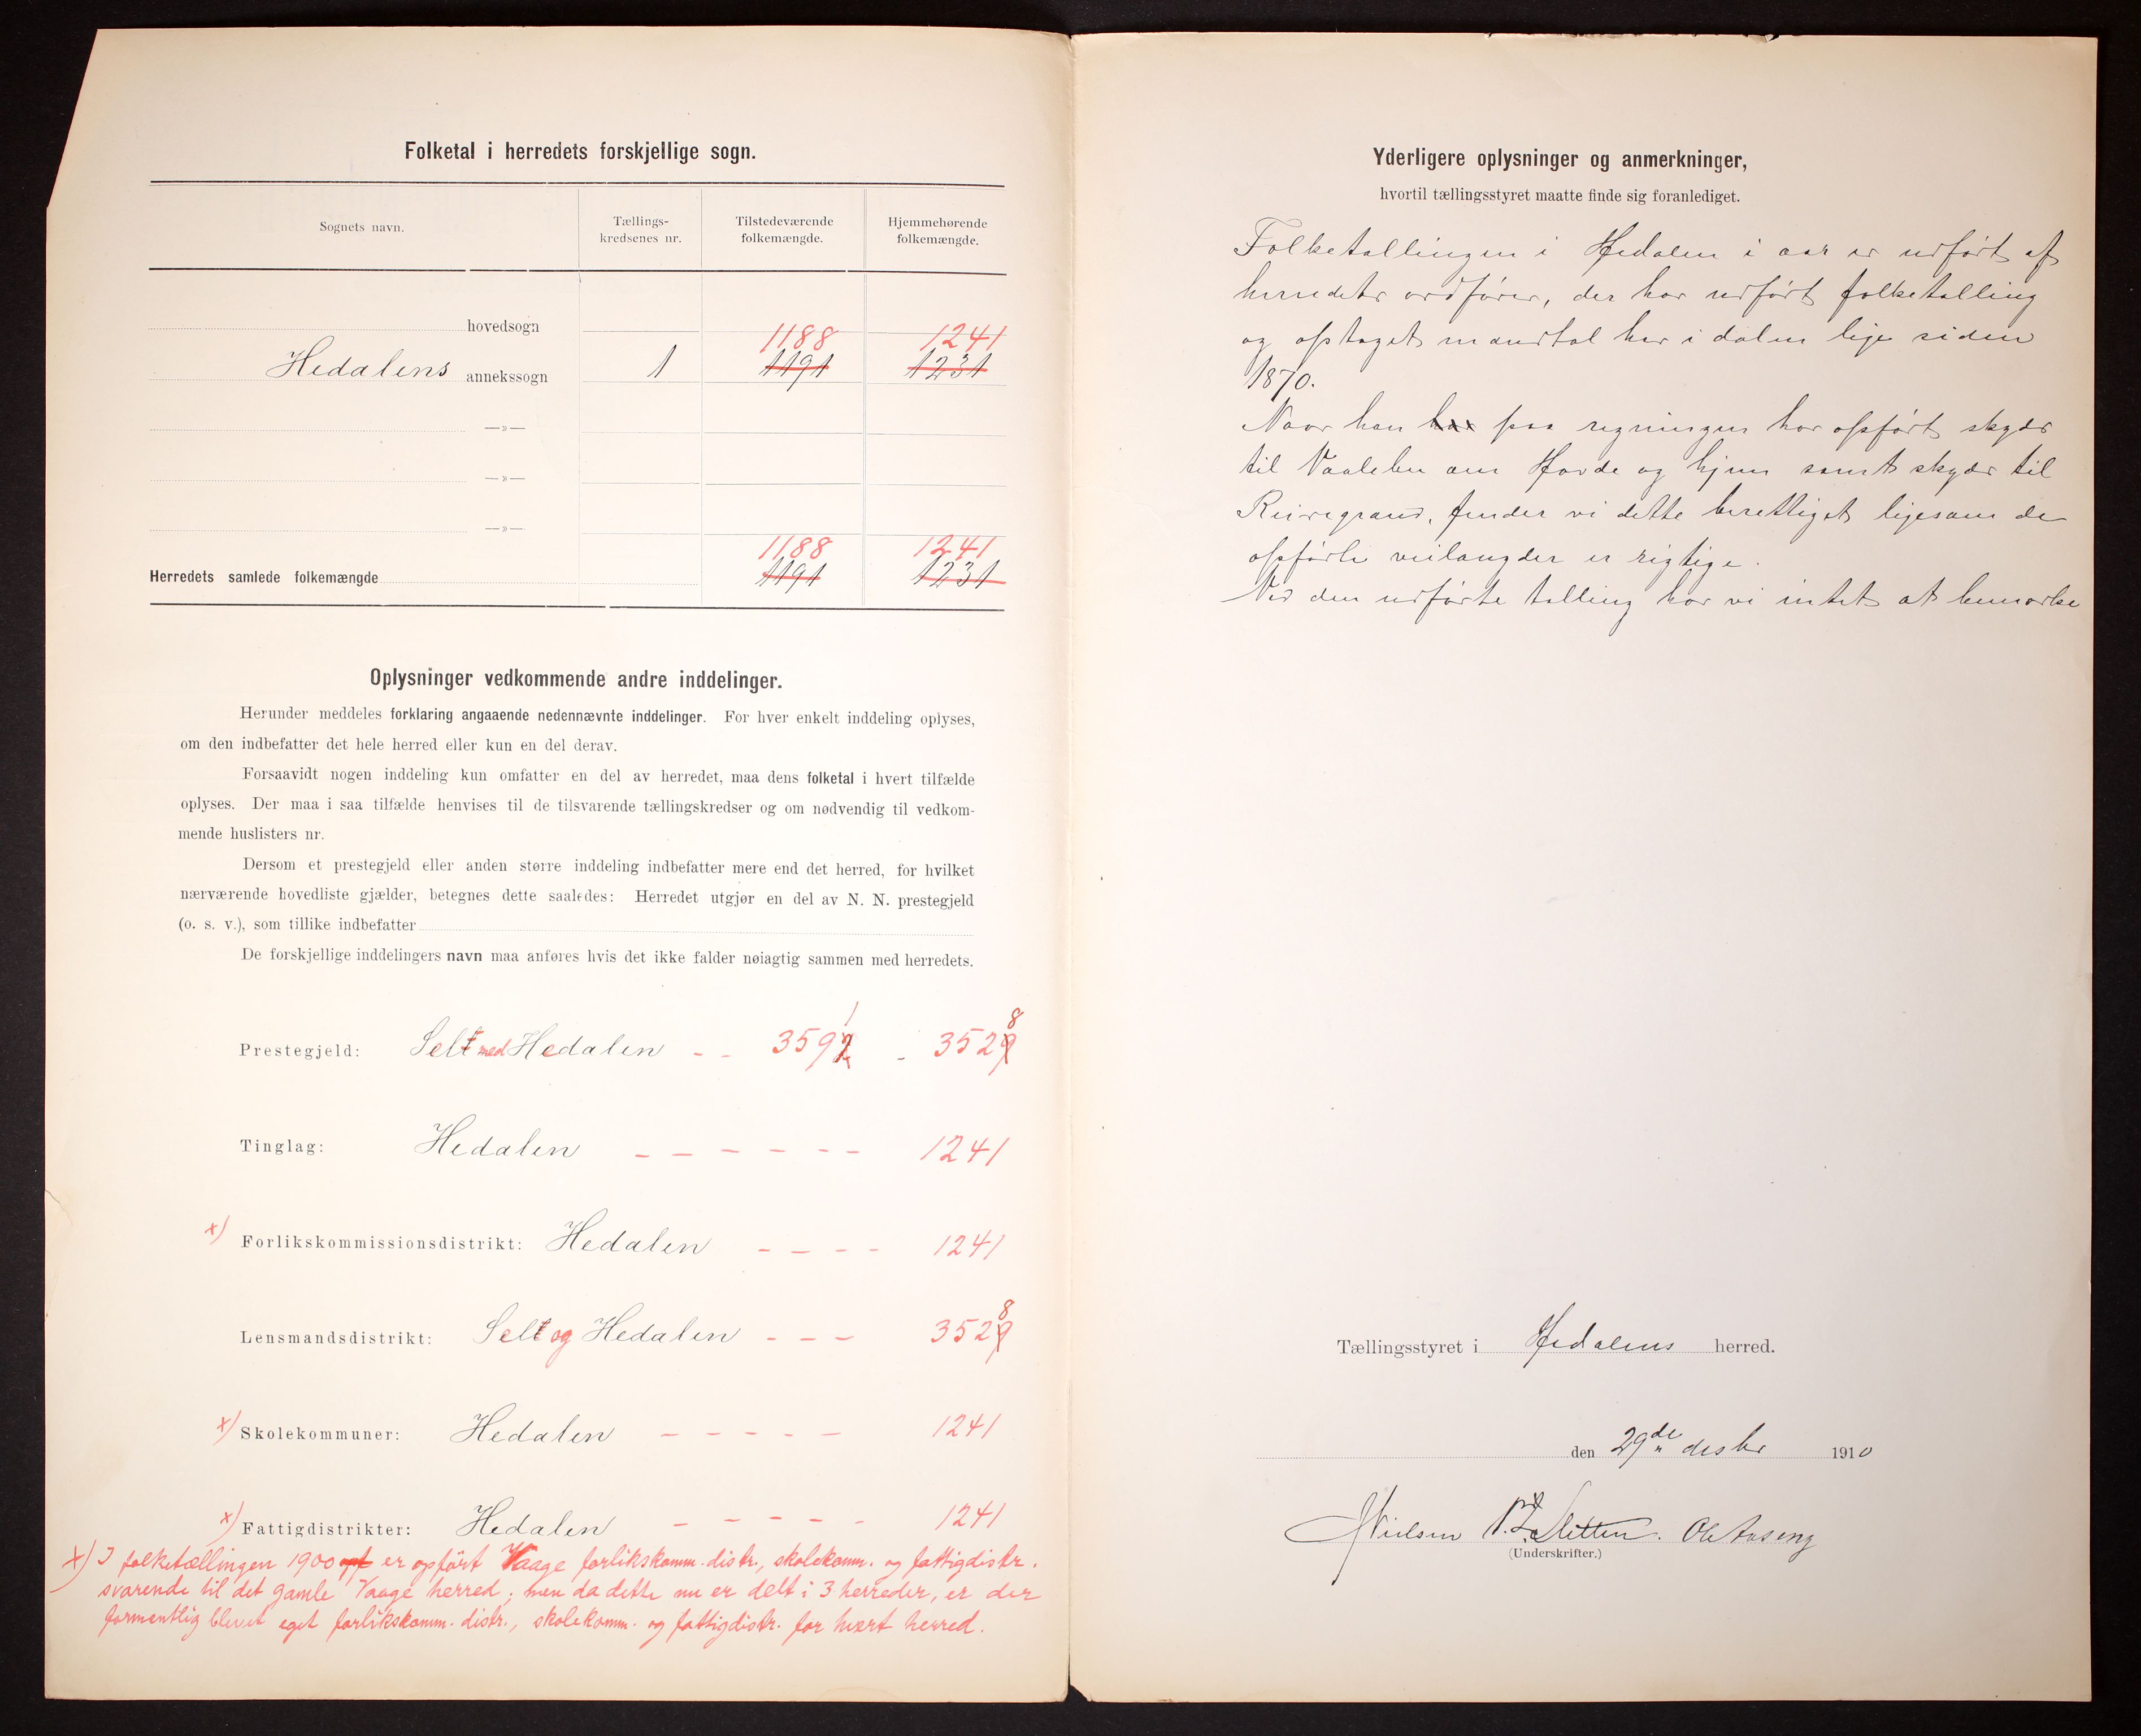 Folketal i herredets forskjellige sogn.
Sognets navn.
Tællings-
kredsenes nr.
Tilstedeværende
folkemængde.
Hjemmehørende
folkemængde.
hovedsogn
1188 1241
Hedalens annekssogn 1 1191 1231
—»—
—»—
—»—
1188 1241
Herredets samlede folkemængde 1191 1231
Oplysninger vedkommende andre inddelinger.
Herunder meddeles forklaring angaaende nedennævnte inddelinger. For hver enkelt inddeling oplyses,
om den indbefatter det hele herred eller kun en del derav.
Forsaavidt nogen inddeling kun omfatter en del av herredet, maa dens folketal i hvert tilfælde
oplyses. Der maa i saa tilfælde henvises til de tilsvarende tællingskredser og om nødvendig til vedkom-
mende huslisters nr.
Dersom et prestegjeld eller anden større inddeling indbefatter mere end det herred, for hvilket
nærværende hovedliste gjælder, betegnes dette saaledes: Herredet utgjør en del av N. N. prestegjeld
(o. s. v.), som tillike indbefatter
De forskjellige inddelingers navn maa anføres hvis det ikke falder nøiagtig sammen med herredets.
1 8
Prestegjeld: Sel med Hedalen - - 3592 - 3529
Tinglag: Hedalen - - - - - - 1241
x) Forlikskommissionsdistrikt: Hedalen - - - - 1241
8
Lensmandsdistrikt: Sel og Hedalen - - - 3529
x) Skolekommuner: Hedalen - - - - - 1241
x) Fattigdistrikter: Hedalen - - - - - 1241
x) I folketællingen 1900 er opført Vaage forlikskomm. distr., skolekomm. og fattigdistr.
svarende til det gamle Vaage herred; men da dette nu er delt i 3 herreder, er der
formentlig blevet eget forlikskomm. distr., skolekomm. og fattigdistr. for hvert herred.
Yderligere oplysninger og anmerkninger,
hvortil tællingsstyret maatte finde sig foranlediget.
Folketællingen i Hedalen i aar er udført af
herredets ordfører, der har udført folketælling
og optaget mandtal her i dalen lige siden
1870.
Naar han har paa regningen har opført skyds
til Vaalebu om Hovde og hjem samt skyds til
finder vi dette berettiget ligesom de
opførte veilængder er rigtige.
Ved den udførte tælling har vi intet at bemærke
Tællingsstyret i Hedalens herred.
den 29de desbr 1910
Nielsen Sletten. Ole Aaseng
(Underskrifter.)